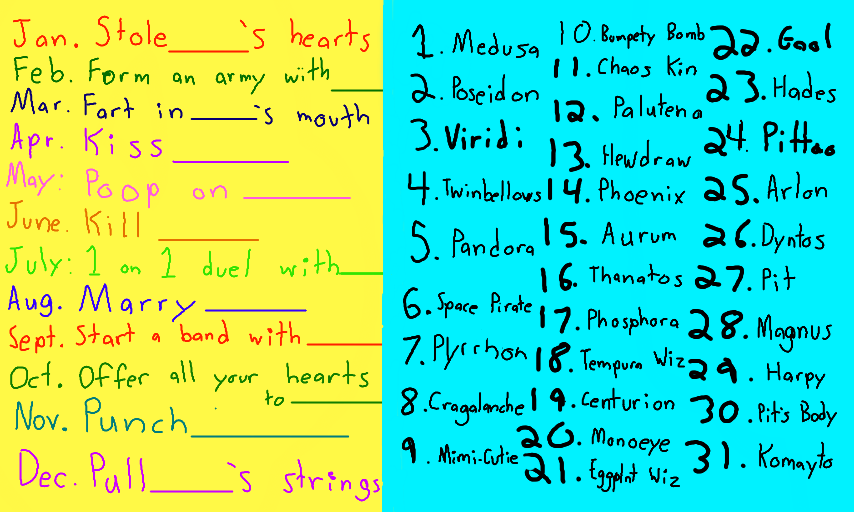 Jan. Stole______'s hearts
Feb. Form an army with____
Mar. Fart in _____'s mouth
Apr. Kiss ________
May: Poop on ________
June. Kill ________
July: 1 on 1 duel with____
Aug. Marry ________
Sept. Start a band with ______
Oct. Offer all your hearts
to ________
Nov. Punch____________
Dec. Pull______'s strings
1. Medusa
2. Poseidon
3. Viridi
4. Twinbellows
5. Pandora
6. Space Pirate
7. Pyrrhon
8. Cragalanche
9. Mimi-Cutie
10. Bumpety Bomb
11. Chaos Kin
12. Palutena
13. Hewdraw
14. Phoenix
15. Aurum
16. Thanatos
17. Phosphora
18. Tempura Wiz
19. Centurion
20. Monoeye
21. Eggplnt Wiz
22. Gaol
23. Hades
24. Pittoo
25. Arlon
26. Dyntos
27. Pit
28. Magnus
29. Harpy
30. Pit's Body
31. Komayto